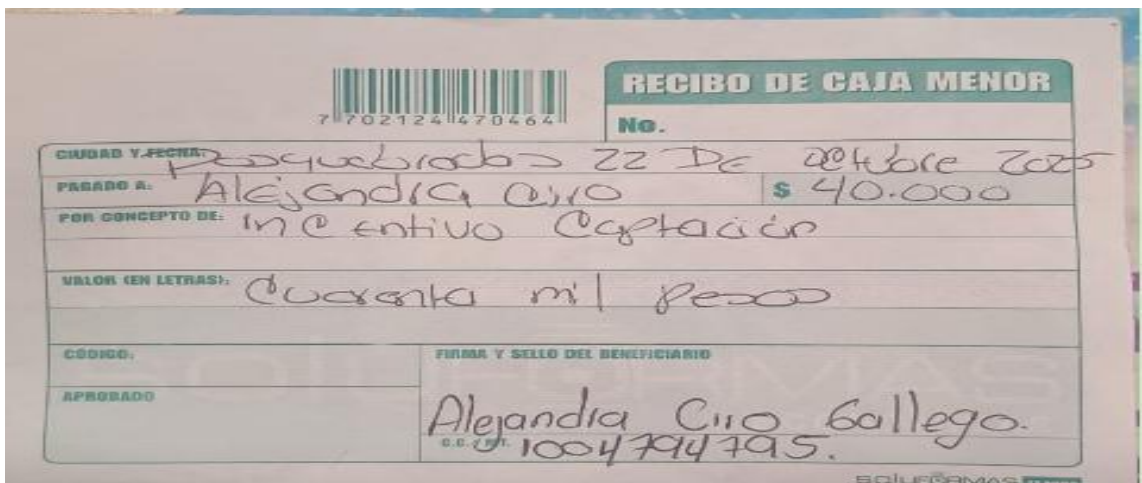 RECIBO DE CAJA MENOR
7 702124 470464
No.
CIUDAD Y FECHA: Dosquebradas 22 De octubre 2025
PAGADO A: Alejandra Ciro $ 40.000
POR CONCEPTO DE: Incentivo Captación
VALOR (EN LETRAS): Cuarenta mil pesos
CÓDIGO. FIRMA Y SELLO DEL BENEFICIARIO
APROBADO
Alejandra Ciro Gallego.
C.C. / NIT. 1004794795.
SOLUFORMAS